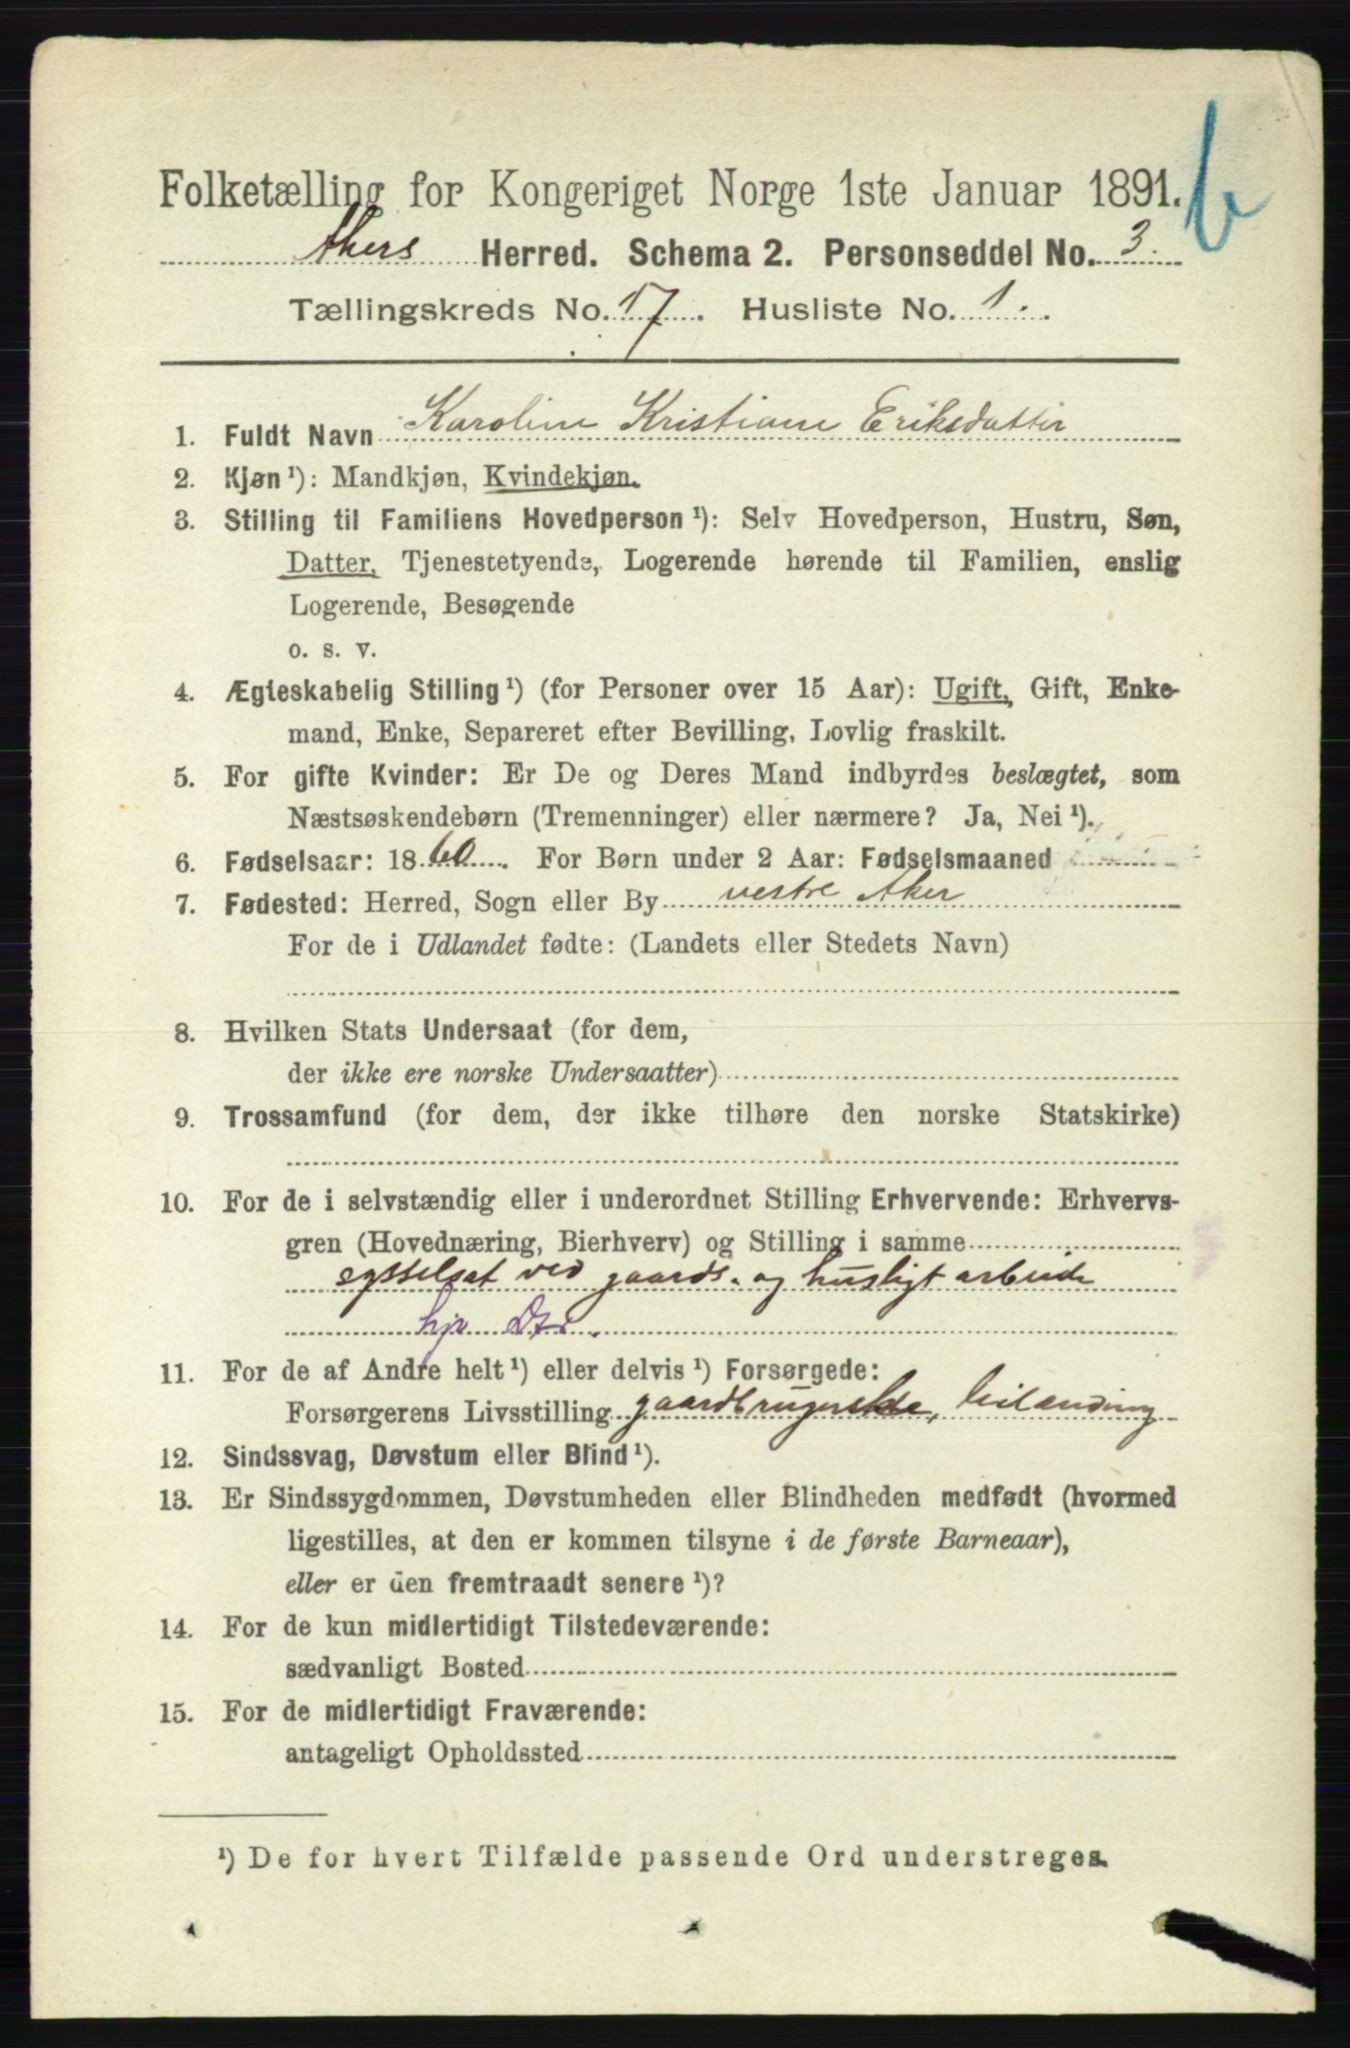 b
Folketælling for Kongeriget Norge 1ste Januar 1891.
Akers Herred. Schema 2. Personseddel No. 3.
Tællingskreds No. 17. Husliste No. 1.
1. Fuldt Navn Karoline Kristiane Eriksdatter
2. Kjøn¹): Mandkjøn, Kvindekjøn.
3. Stilling til Familiens Hovedperson¹): Selv Hovedperson, Hustru, Søn,
Datter, Tjenestetyende, Logerende hørende til Familien, enslig
Logerende, Besøgende
o. s. v.
4. Ægteskabelig Stilling¹) (for Personer over 15 Aar): Ugift, Gift, Enke-
mand, Enke, Separeret efter Bevilling, Lovlig fraskilt.
5. For gifte Kvinder: Er De og Deres Mand indbyrdes beslægtet, som
Næstsøskendebørn (Tremenninger) eller nærmere? Ja, Nei¹).
6. Fødselsaar: 1860. For Børn under 2 Aar: Fødselsmaaned
7. Fødested: Herred, Sogn eller By vestre Aker
For de i Udlandet fødte: (Landets eller Stedets Navn)
8. Hvilken Stats Undersaat (for dem,
der ikke ere norske Undersaatter)
9. Trossamfund (for dem, der ikke tilhøre den norske Statskirke)
10. For de i selvstændig eller i underordnet Stilling Erhvervende: Erhvervs-
gren (Hovednæring, Bierhverv) og Stilling i samme
sysselsat ved gaards- og husligt arbeide
hj
11. For de af Andre helt¹) eller delvis¹) Forsørgede:
Forsørgerens Livsstilling
12. Sindssvag, Døvstum eller Blind¹).
13. Er Sindssygdommen, Døvstumheden eller Blindheden medfødt (hvormed
ligestilles, at den er kommen tilsyne i de første Barneaar),
eller er den fremtraadt senere¹)?
14. For de kun midlertidigt Tilstedeværende:
sædvanligt Bosted
15. For de midlertidigt Fraværende:
antageligt Opholdssted
¹) De for hvert Tilfælde passende Ord understreges.